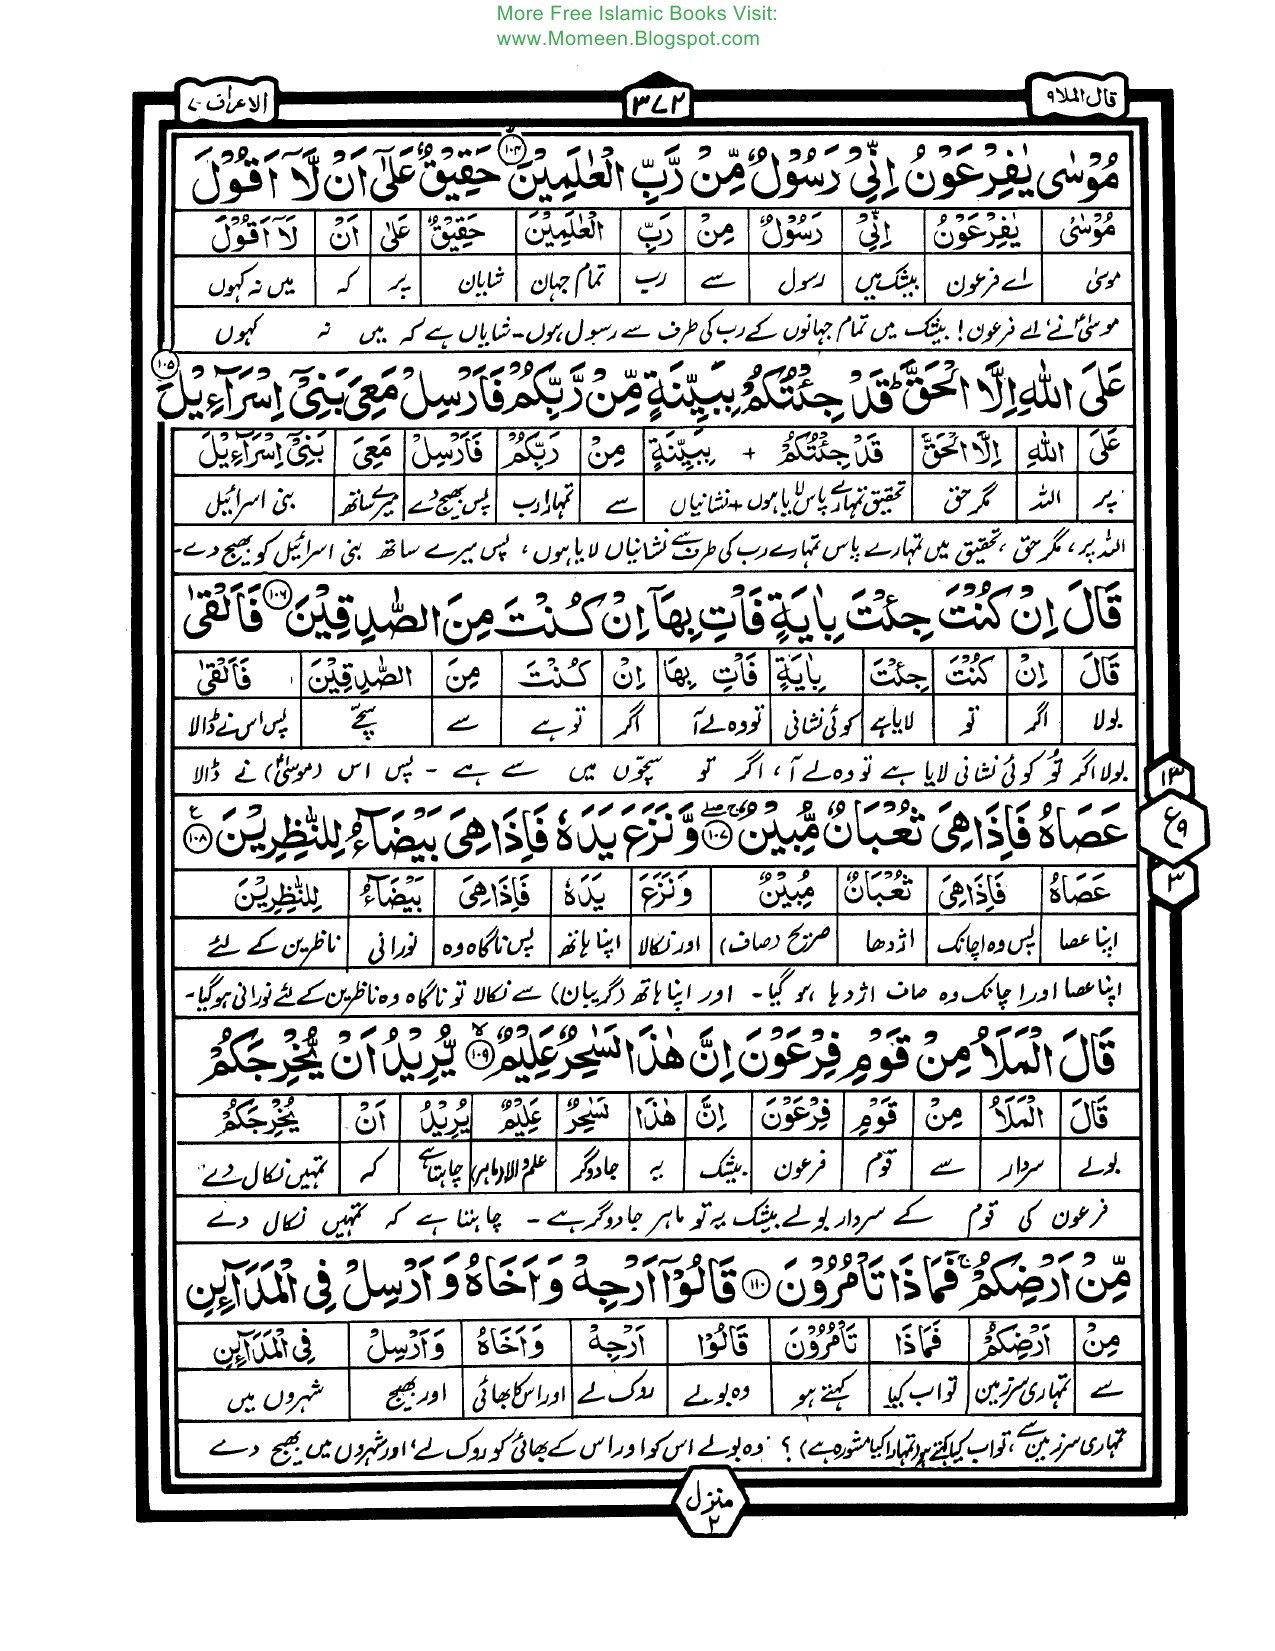 More Free Islamic Books Visit:
www.Momeen.Blogspot.com
قال الملا ٩
٣٧٢
الاعراف ۷
مُوْسٰى يٰفِرْعَوْنُ اِنِّیْ رَسُوْلٌ مِّنْ رَّبِّ الْعٰلَمِيْنَ ۱۰۴ حَقِيْقٌ عَلٰٓى اَنْ لَّآ اَقُوْلَ
مُوْسٰى يٰفِرْعَوْنُ اِنِّیْ رَسُوْلٌ مِنْ رَبِّ الْعٰلَمِيْنَ حَقِيْقٌ عَلٰى اَنْ لَآ اَقُوْلَ
موسیٰ اے فرعون بیشک میں رسول سے رب تمام جہان شایان پر کہ میں نہ کہوں
موسیٰؑ نے اے فرعون! بیشک میں تمام جہانوں کے رب کی طرف سے رسول ہوں۔ شایاں ہے کہ میں نہ کہوں
عَلَى اللّٰهِ اِلَّا الْحَقَّ ؕ قَدْ جِئْتُكُمْ بِبَيِّنَةٍ مِّنْ رَّبِّكُمْ فَاَرْسِلْ مَعِیَ بَنِیْٓ اِسْرَآءِيْلَ ۱۰۵
عَلَى اللّٰهِ اِلَّا الْحَقَّ قَدْ جِئْتُكُمْ + بِبَيِّنَةٍ مِنْ رَبِّكُمْ فَاَرْسِلْ مَعِیَ بَنِیْٓ اِسْرَآءِيْلَ
پر اللہ مگر حق تحقیق تمہارے پاس لایا ہوں + نشانیاں سے تمہارا رب پس بھیج دے میرے ساتھ بنی اسرائیل
اللہ پر، مگر حق، تحقیق میں تمہارے پاس تمہارے رب کی طرف سے نشانیاں لایا ہوں، پس میرے ساتھ بنی اسرائیل کو بھیج دے۔
قَالَ اِنْ كُنْتَ جِئْتَ بِاٰيَةٍ فَاْتِ بِهَآ اِنْ كُنْتَ مِنَ الصّٰدِقِيْنَ ۱۰۶ فَاَلْقٰى
قَالَ اِنْ كُنْتَ جِئْتَ بِاٰيَةٍ فَاْتِ بِهَا اِنْ كُنْتَ مِنَ الصّٰدِقِيْنَ فَاَلْقٰى
بولا اگر تو لایا ہے کوئی نشانی تو وہ لے آ اگر تو ہے سے سچے پس اس نے ڈالا
بولا اگر تُو کوئی نشانی لایا ہے تو وہ لے آ، اگر تو سچوں میں سے ہے ۔ پس اس (موسیٰؑ) نے ڈالا
عَصَاهُ فَاِذَا هِیَ ثُعْبَانٌ مُّبِيْنٌ ۱۰۷ وَّنَزَعَ يَدَهٗ فَاِذَا هِیَ بَيْضَآءُ لِلنّٰظِرِيْنَ ۱۰۸
عَصَاهُ فَاِذَا هِیَ ثُعْبَانٌ مُبِيْنٌ وَنَزَعَ يَدَهٗ فَاِذَا هِیَ بَيْضَآءُ لِلنّٰظِرِيْنَ
اپنا عصا پس وہ اچانک اژدھا صریح (صاف) اور نکالا اپنا ہاتھ پس ناگاہ وہ نورانی ناظرین کے لئے
اپنا عصا اور اچانک وہ صاف اژدہا ہو گیا۔ اور اپنا ہاتھ (گریبان) سے نکالا تو ناگاہ وہ ناظرین کے لئے نورانی ہوگیا۔
١٣
ع ٩
٣
قَالَ الْمَلَاُ مِنْ قَوْمِ فِرْعَوْنَ اِنَّ هٰذَا لَسٰحِرٌ عَلِيْمٌ ۱۰۹ يُّرِيْدُ اَنْ يُّخْرِجَكُمْ
قَالَ الْمَلَاُ مِنْ قَوْمِ فِرْعَوْنَ اِنَّ هٰذَا لَسٰحِرٌ عَلِيْمٌ يُرِيْدُ اَنْ يُخْرِجَكُمْ
بولے سردار سے قوم فرعون بیشک یہ جادوگر علم والا (ماہر) چاہتا ہے کہ تمہیں نکال دے
فرعون کی قوم کے سردار بولے بیشک یہ تو ماہر جادوگر ہے ۔ چاہتا ہے کہ تمہیں نکال دے
مِّنْ اَرْضِكُمْ ۚ فَمَاذَا تَاْمُرُوْنَ ۱۱۰ قَالُوْٓا اَرْجِهْ وَاَخَاهُ وَاَرْسِلْ فِی الْمَدَآئِنِ
مِنْ اَرْضِكُمْ فَمَاذَا تَاْمُرُوْنَ قَالُوْا اَرْجِهْ وَاَخَاهُ وَاَرْسِلْ فِی الْمَدَآئِنِ
سے تمہاری سرزمین تو اب کیا کہتے ہو وہ بولے روک لے اور اس کا بھائی اور بھیج شہروں میں
تمہاری سرزمین سے، تو اب کیا کہتے ہو (تمہارا کیا مشورہ ہے)؟ وہ بولے اس کو اور اس کے بھائی کو روک لے، اور شہروں میں بھیج دے
منزل ٢